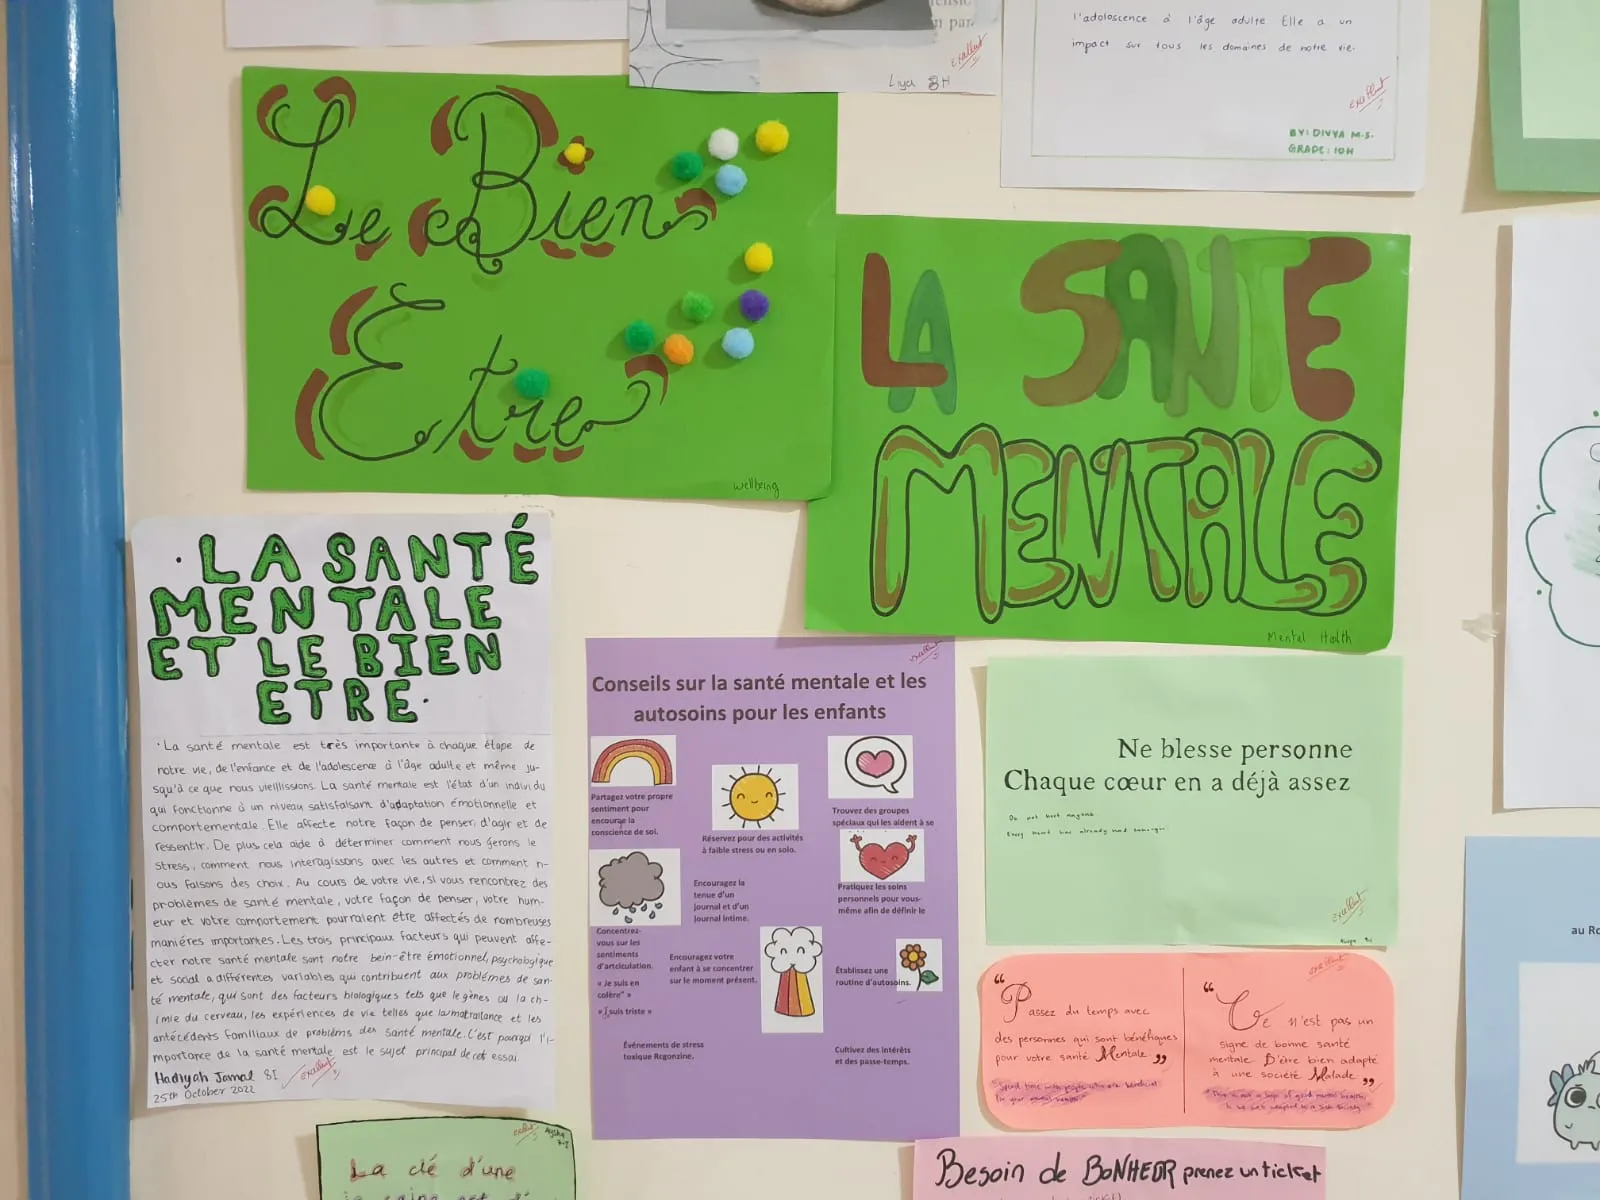 l'adoloscence à l'âge adulte Elle a un
impact sur tous les domaines de notre vie.
excellent
BY: DIVYA M.S.
GRADE: 10H
excellent
Liya 8H
Le Bien
Etre
wellbeing
LA SANTE
MENTALE
Mental Health
· LA SANTÉ
MENTALE
ET LE BIEN
ETRE·
·La santé mentale est très importante à chaque étape de
notre vie, de l'enfance et de l'adolescence à l'âge adulte et même ju-
squ'à ce que nous vieillissions. La santé mentale est l'état d'un individu
qui fonctionne à un niveau satisfaisant d'adaptation émotionnelle et
comportementale. Elle affecte notre façon de penser, d'agir et de
ressentir. De plus cela aide à déterminer comment nous gérons le
stress, comment nous interagissons avec les autres et comment n-
ous faisons des choix. Au cours de votre vie, si vous rencontrez des
problèmes de santé mentale, votre façon de penser, votre hum-
eur et votre comportement pourraient être affectés de nombreuses
maniéres importantes. Les trois principaux facteurs qui peuvent affe-
cter notre santé mentale sont notre bein-être émotionnel, psychologique
et social a différentes variables qui contribuent aux problèmes de san-
té mentale, qui sont des facteurs biologiques tels que le gènes ou la ch-
imie du cerveau, les expériences de vie telles que la maltraitance et les
antécédents familiaux de problèms des santé mentale. C'est pourqoi l'i-
mportance de la santé mentale est le sujet principal de cet essai
Hadiyah Jamal 8I
excellent
25th October 2022
excellent
Conseils sur la santé mentale et les
autosoins pour les enfants
Partagez votre propre
sentiment pour
encourage la
conscience de soi.
Réservez pour des activités
à faible stress ou en solo.
Trouvez des groupes
spéciaux qui les aident à se
Encouragez la
tenue d'un
journal et d'un
journal intime.
Pratiquez les soins
personnels pour vous-
même afin de définir le
Concentrez-
vous sur les
sentiments
d'artciculation.
« Je suis en
colère" »
« I suis triste »
Encouragez votre
enfant à se concentrer
sur le moment présent.
Établissez une
routine d'autosoins.
Événements de stress
toxique Rcgonzine.
Cultivez des intérêts
et des passe-temps.
Ne blesse personne
Chaque cœur en a déjà assez
Do not hurt anyone
Every heart has already had
excellent
excellent
"Passez du temps avec
des personnes qui sont bénéfiques
pour votre santé Mentale"
Spend time with people who are beneficial
for your mental health
"Ce n'est pas un
signe de bonne santé
mentale D'être bien adapté
à une société Malade"
This is not a sign of good mental health
to be well adapted to a sick society
excellent
La clé d'une
Besoin de BoNHEUR prenez un ticket
au